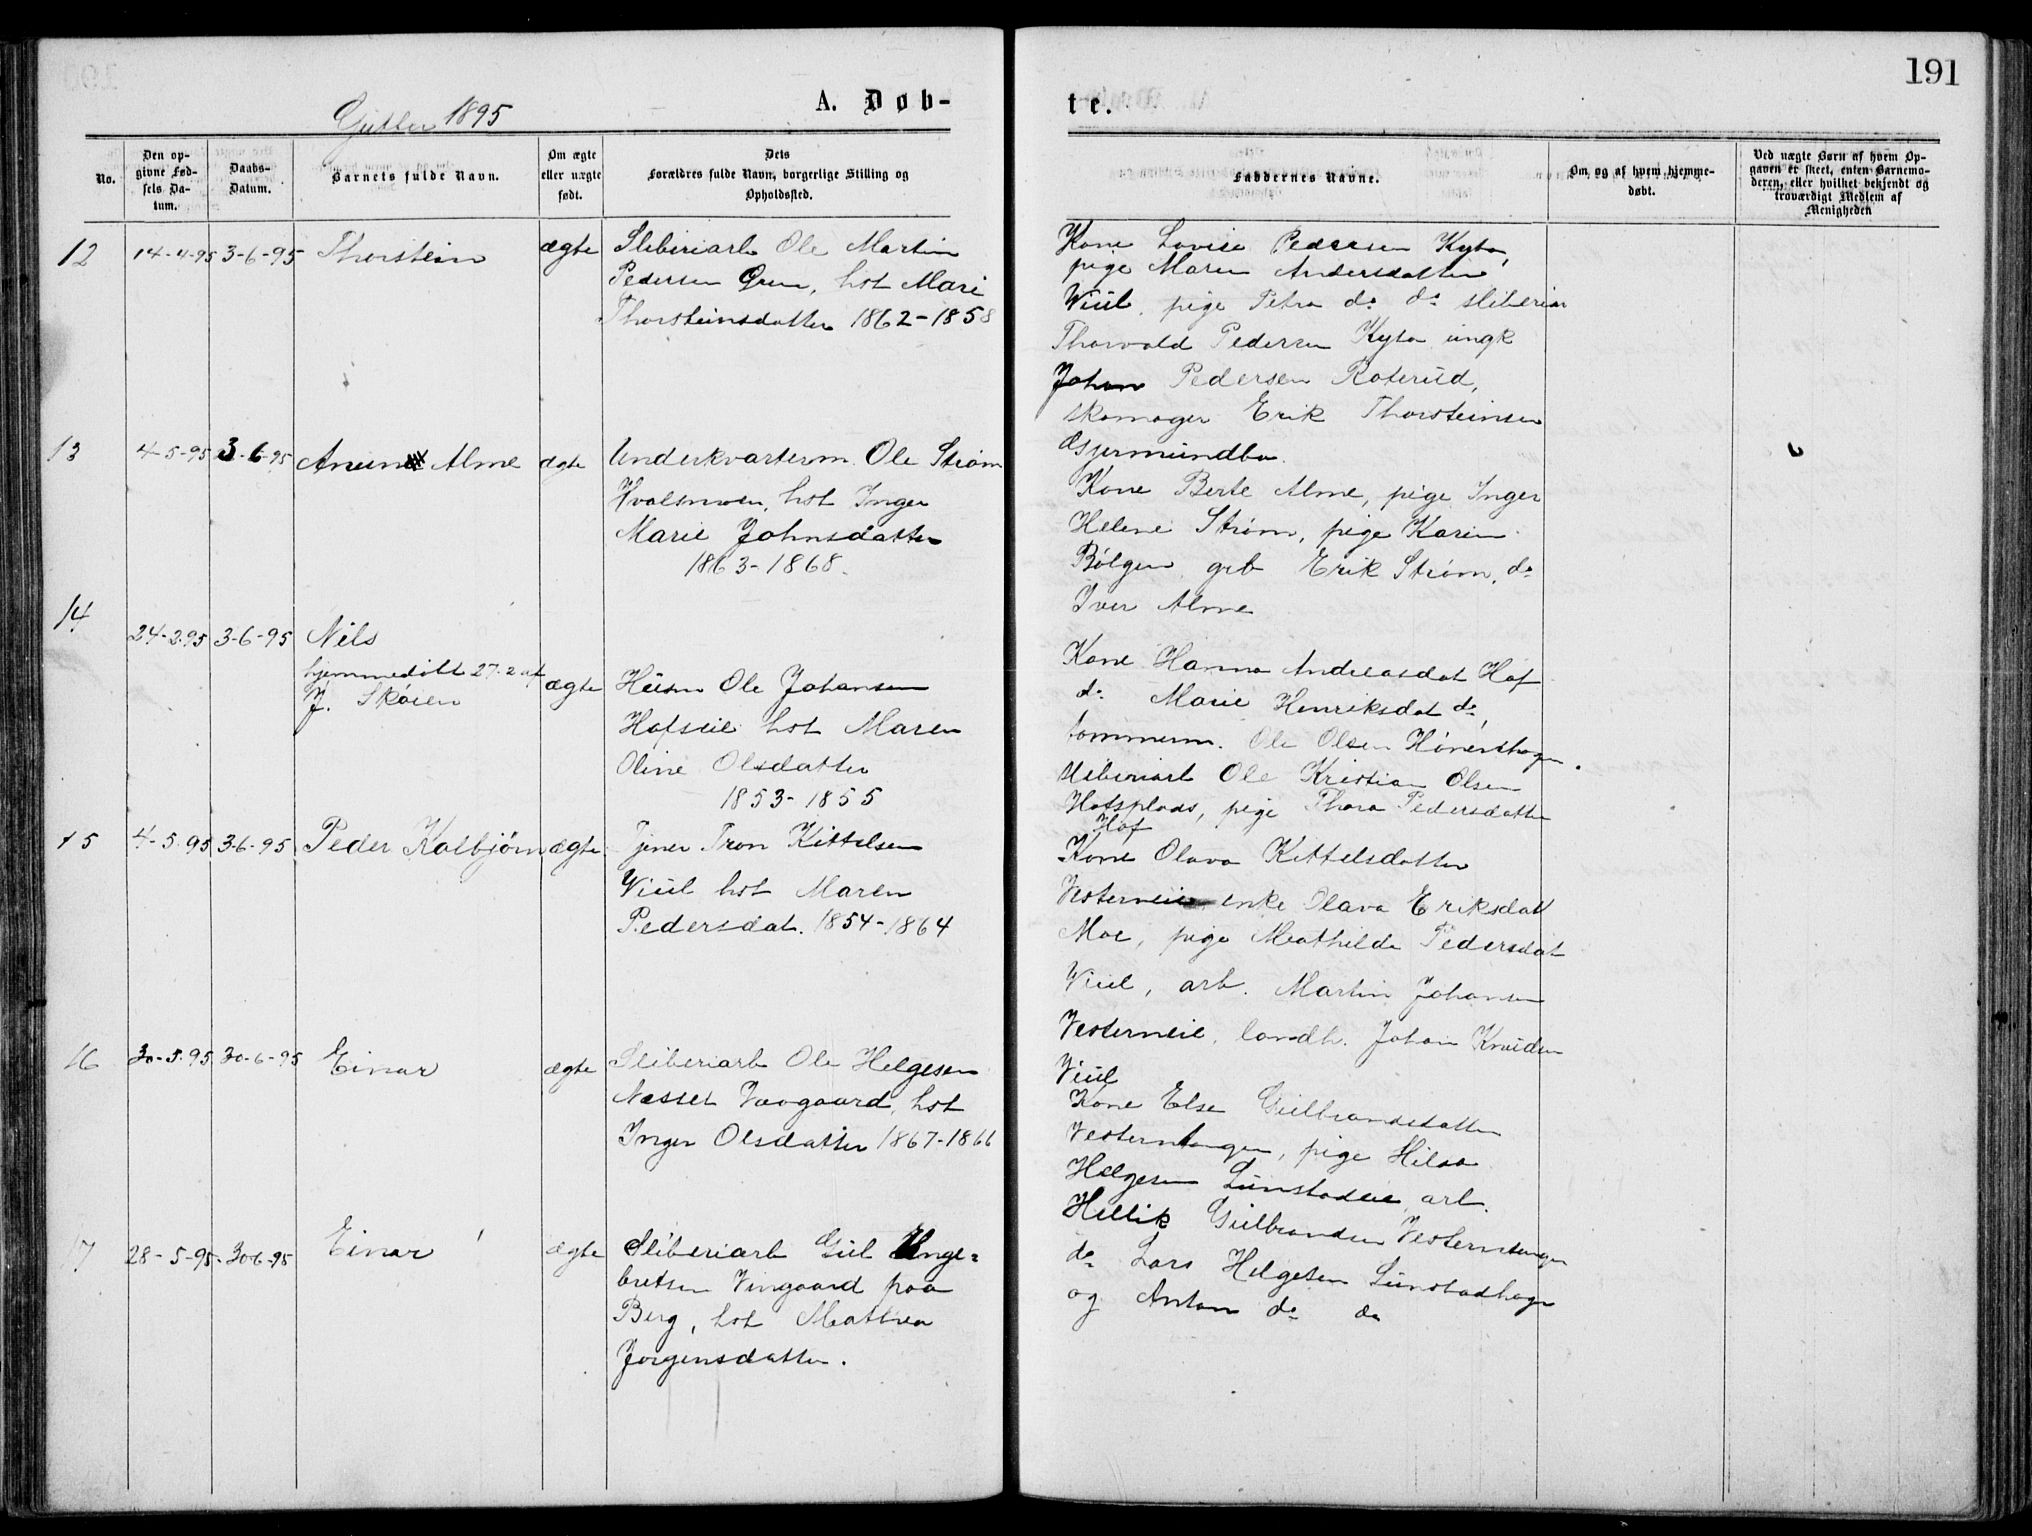 191
Gutter 1895
A. Døb-
te.
No.
Den op-
givne Fød-
sels Da-
tum.
Daabs-
Datum.
Barnets fulde Navn.
Om ægte
eller uægte
født.
Dets
Forældres fulde Navn, borgerlige Stilling og
Opholdssted.
Faddernes Navne.
Om og af hvem hjemme-
døbt.
Ved uægte Børn af hvem Op-
gaven er skeet, enten Barnemo-
deren, eller hvilket bekjendt og
troværdigt Medlem af
Menigheden
12 14-4-95 3-6-95 Thorstein ægte Sliberiarb Ole Martin
Pedersen Gren, hst Mari
Thorsteinsdatter 1862-1858
Kone Lovise Pedersen Kyto,
pige Maren Andersdatter
Viul, pige Petra do do sliberiar
Thorvald Pedersen Kyto ungk
Johan Pedersen Roterud,
skomager Erik Thorsteinsen
Gjermundbo.
13 4-5-95 3-6-95 Anun Alme ægte Underkvarterm. Ole Strøm
Hvalsmoen, hst Inger
Marie Johnsdatter
1863-1868.
Kone Berte Alme, pige Inger
Helene Strøm, pige Karen
Bølgen, grb Erik Strøm, do
Iver Alme
14 24-2-95 3-6-95 Nils
hjemmedøbt 27-2 af
J. Skøien
ægte Husm Ole Johansen
Hofseie hst Maren
Oline Olsdatter
1853-1855
Kone Hanna Andreasdat Hof
do Marie Henriksdat do,
tømmerm. Ole Olsen Hønenshagen.
Sliberiarb Ole Kristian Olsen
Hofsplads, pige Thora Pedersdatter
Hof
15 4-5-95 3-6-95 Peder Kolbjørn ægte Tjener Tron Kittelsen
Viul hst Maren
Pedersdat. 1854-1864
Kone Olava Kittelsdatter
Vesterneie, enke Olava Eriksdatt
Moe, pige Mathilde Pedersdat
Viul, arb. Martin Johansen
Vesterneie, landh. Johan Knudsen
Viul
16 30-5-95 30-6-95 Einar ægte Sliberiarb Ole Helgesen
Næsset Vaagaard, hst
Inger Olsdatter 1867-1866
Kone Else Gulbrandsdatter
Vesterntangen, pige Hilda
Helgesen Lunstadeie, arb.
Hellik Gulbrandsen Vesterntangen
do Lars Helgesen Lunstadhagn
og Anton do do
17 28-5-95 30-6-95 Einar ægte Sliberiarb Gul Enge=
bretsen Vingaard paa
Berg, hst Mathea
Jørgensdatter.